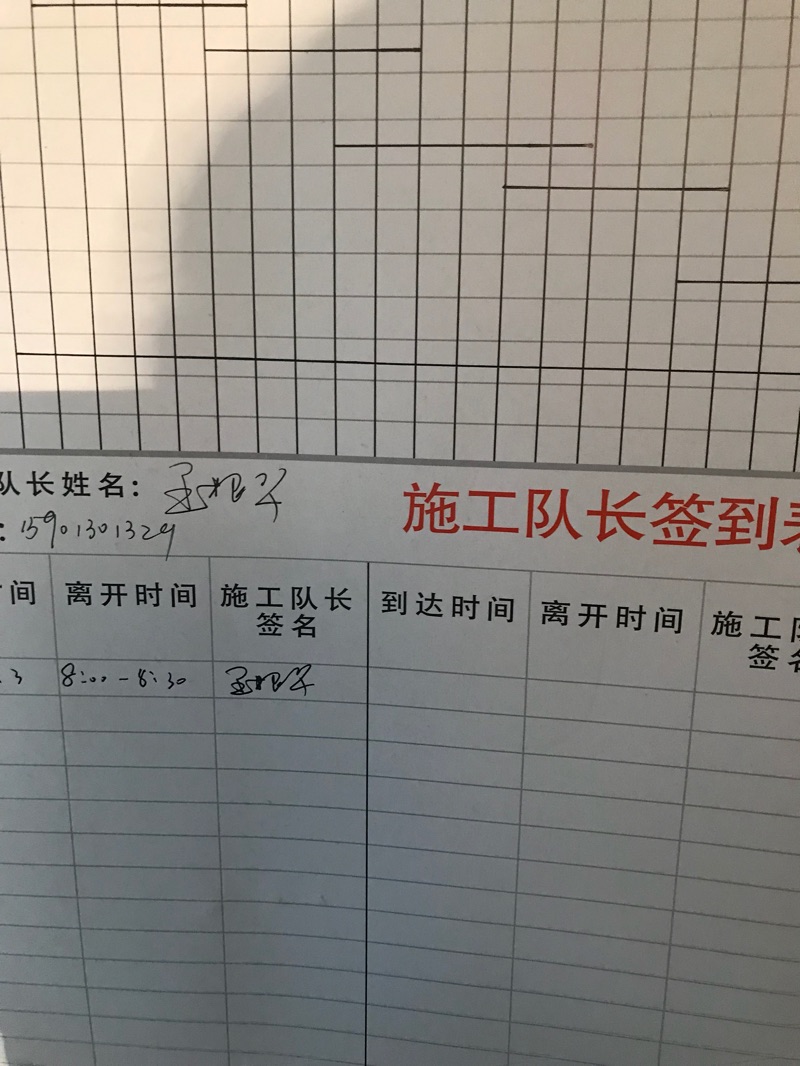 队长姓名：
：15901301329
施工队长签到表
时间 离开时间 施工队长签名 到达时间 离开时间 施工队 签名
.3 8:00-8:30